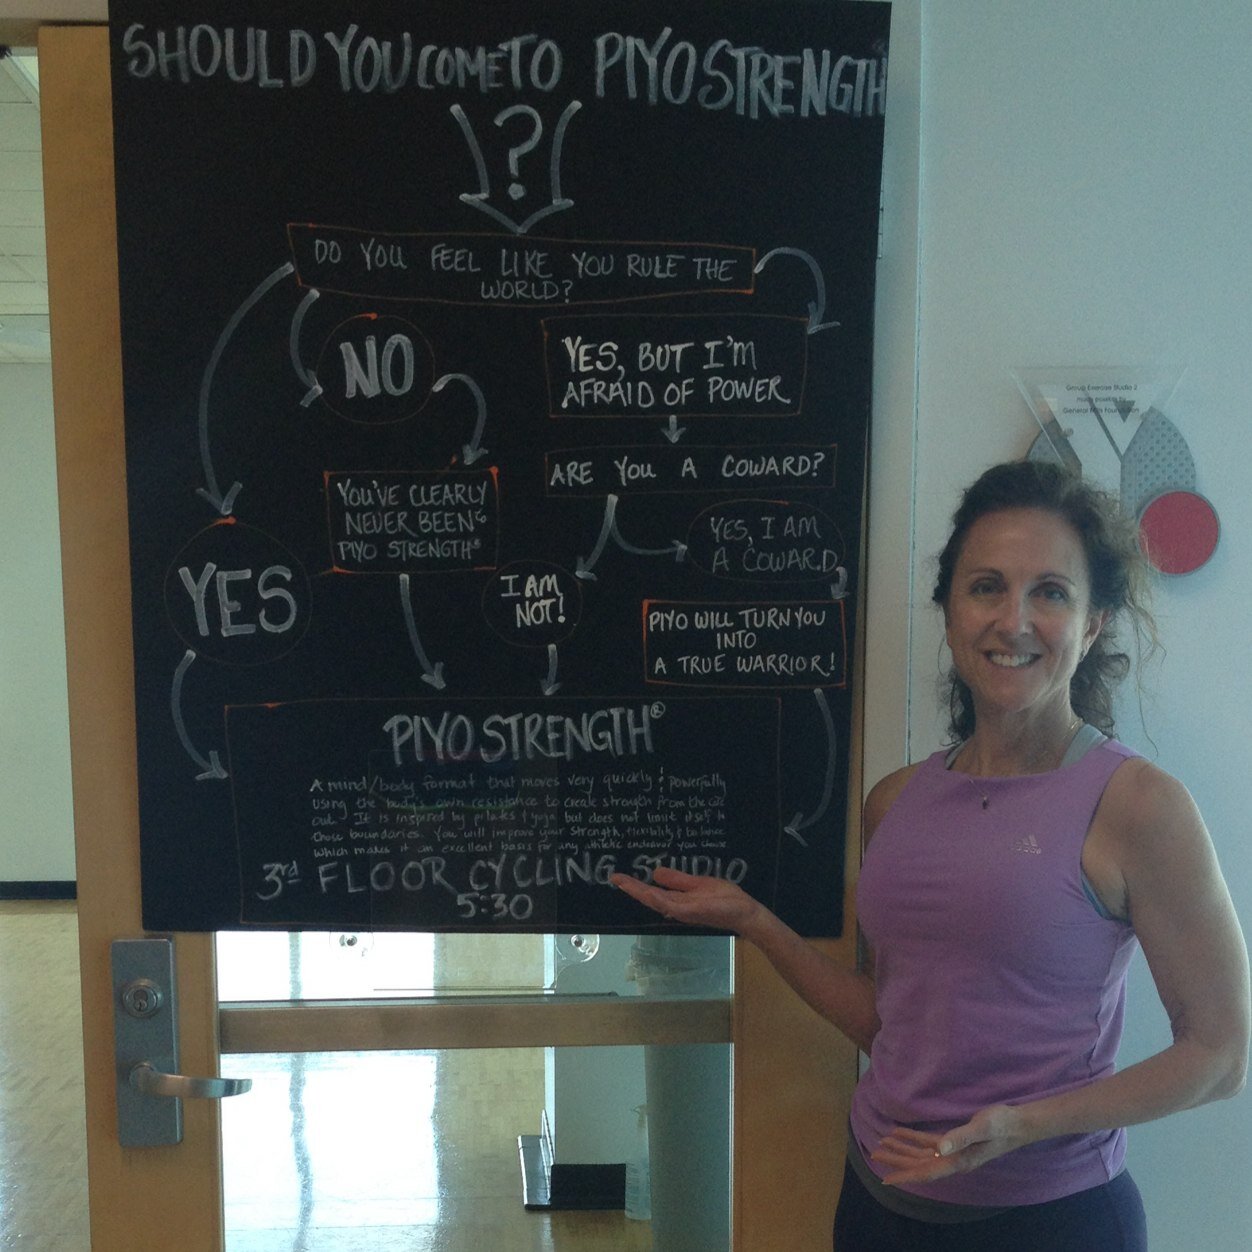 SHOULD YOU COME TO PIYO STRENGTH
?
DO YOU FEEL LIKE YOU RULE THE
WORLD?
NO
YES, BUT I'M
AFRAID OF POWER
ARE YOU A COWARD?
YOU'VE CLEARLY
NEVER BEEN
PIYO STRENGTH®
YES, I AM
A COWARD
YES
I AM
NOT!
PIYO WILL TURN YOU
INTO
A TRUE WARRIOR!
PIYO STRENGTH®
A mind/body format that moves very quickly & powerfully
using the body's own resistance to create strength from the core
out. It is inspired by pilates & yoga but does not limit itself to
those boundaries. You will improve your strength, flexibility & balance
which makes it an excellent basis for any athletic endeavor you choose
3rd FLOOR CYCLING STUDIO
5:30
Group Exercise Studio 2
made possible by
General Mills Foundation
adidas